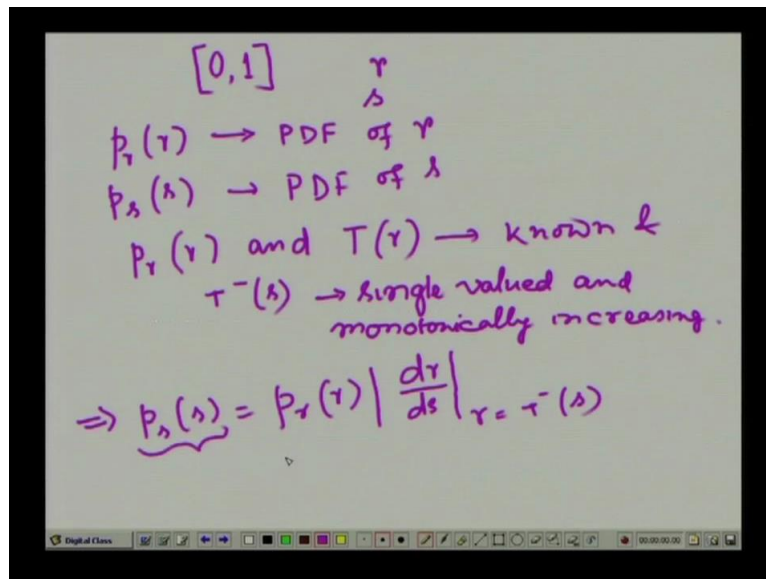 [0,1] r
s
pᵣ(r) → PDF of r
pₛ(s) → PDF of s
pᵣ(r) and T(r) → known &
T⁻(s) → single valued and
monotonically increasing.
⇒ pₛ(s) = pᵣ(r) | dr/ds | r = T⁻(s)
Digital Class 00:00:00:00